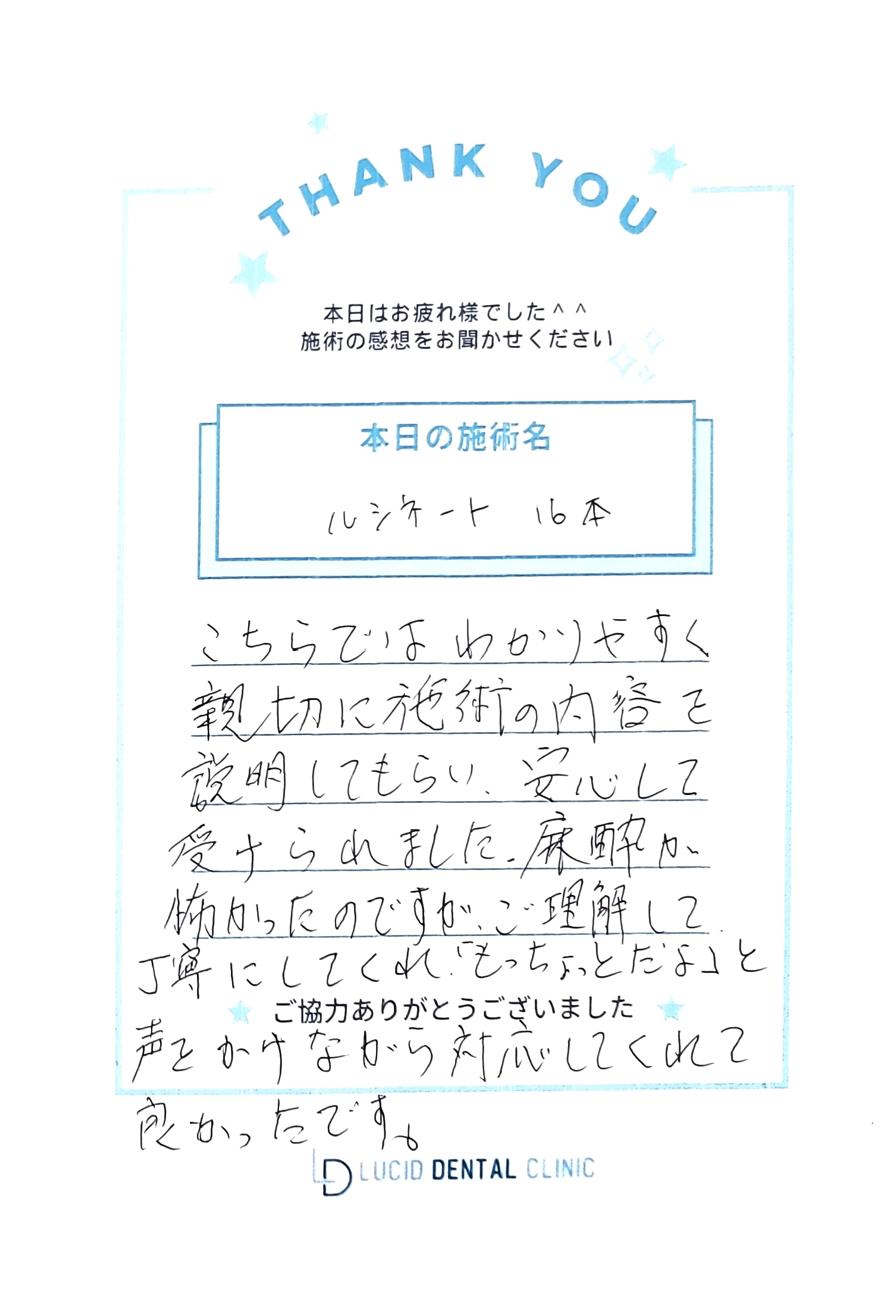 THANK YOU
本日はお疲れ様でした^ ^
施術の感想をお聞かせください
本日の施術名
ルシネート 16本
こちらではわかりやすく
親切に施術の内容を
説明してもらい、安心して
受けられました。麻酔が
怖かったのですが、ご理解して
丁寧にしてくれ、「もっちょっとだよ」と
ご協力ありがとうございました
声をかけながら対応してくれて
良かったです。
LD LUCID DENTAL CLINIC